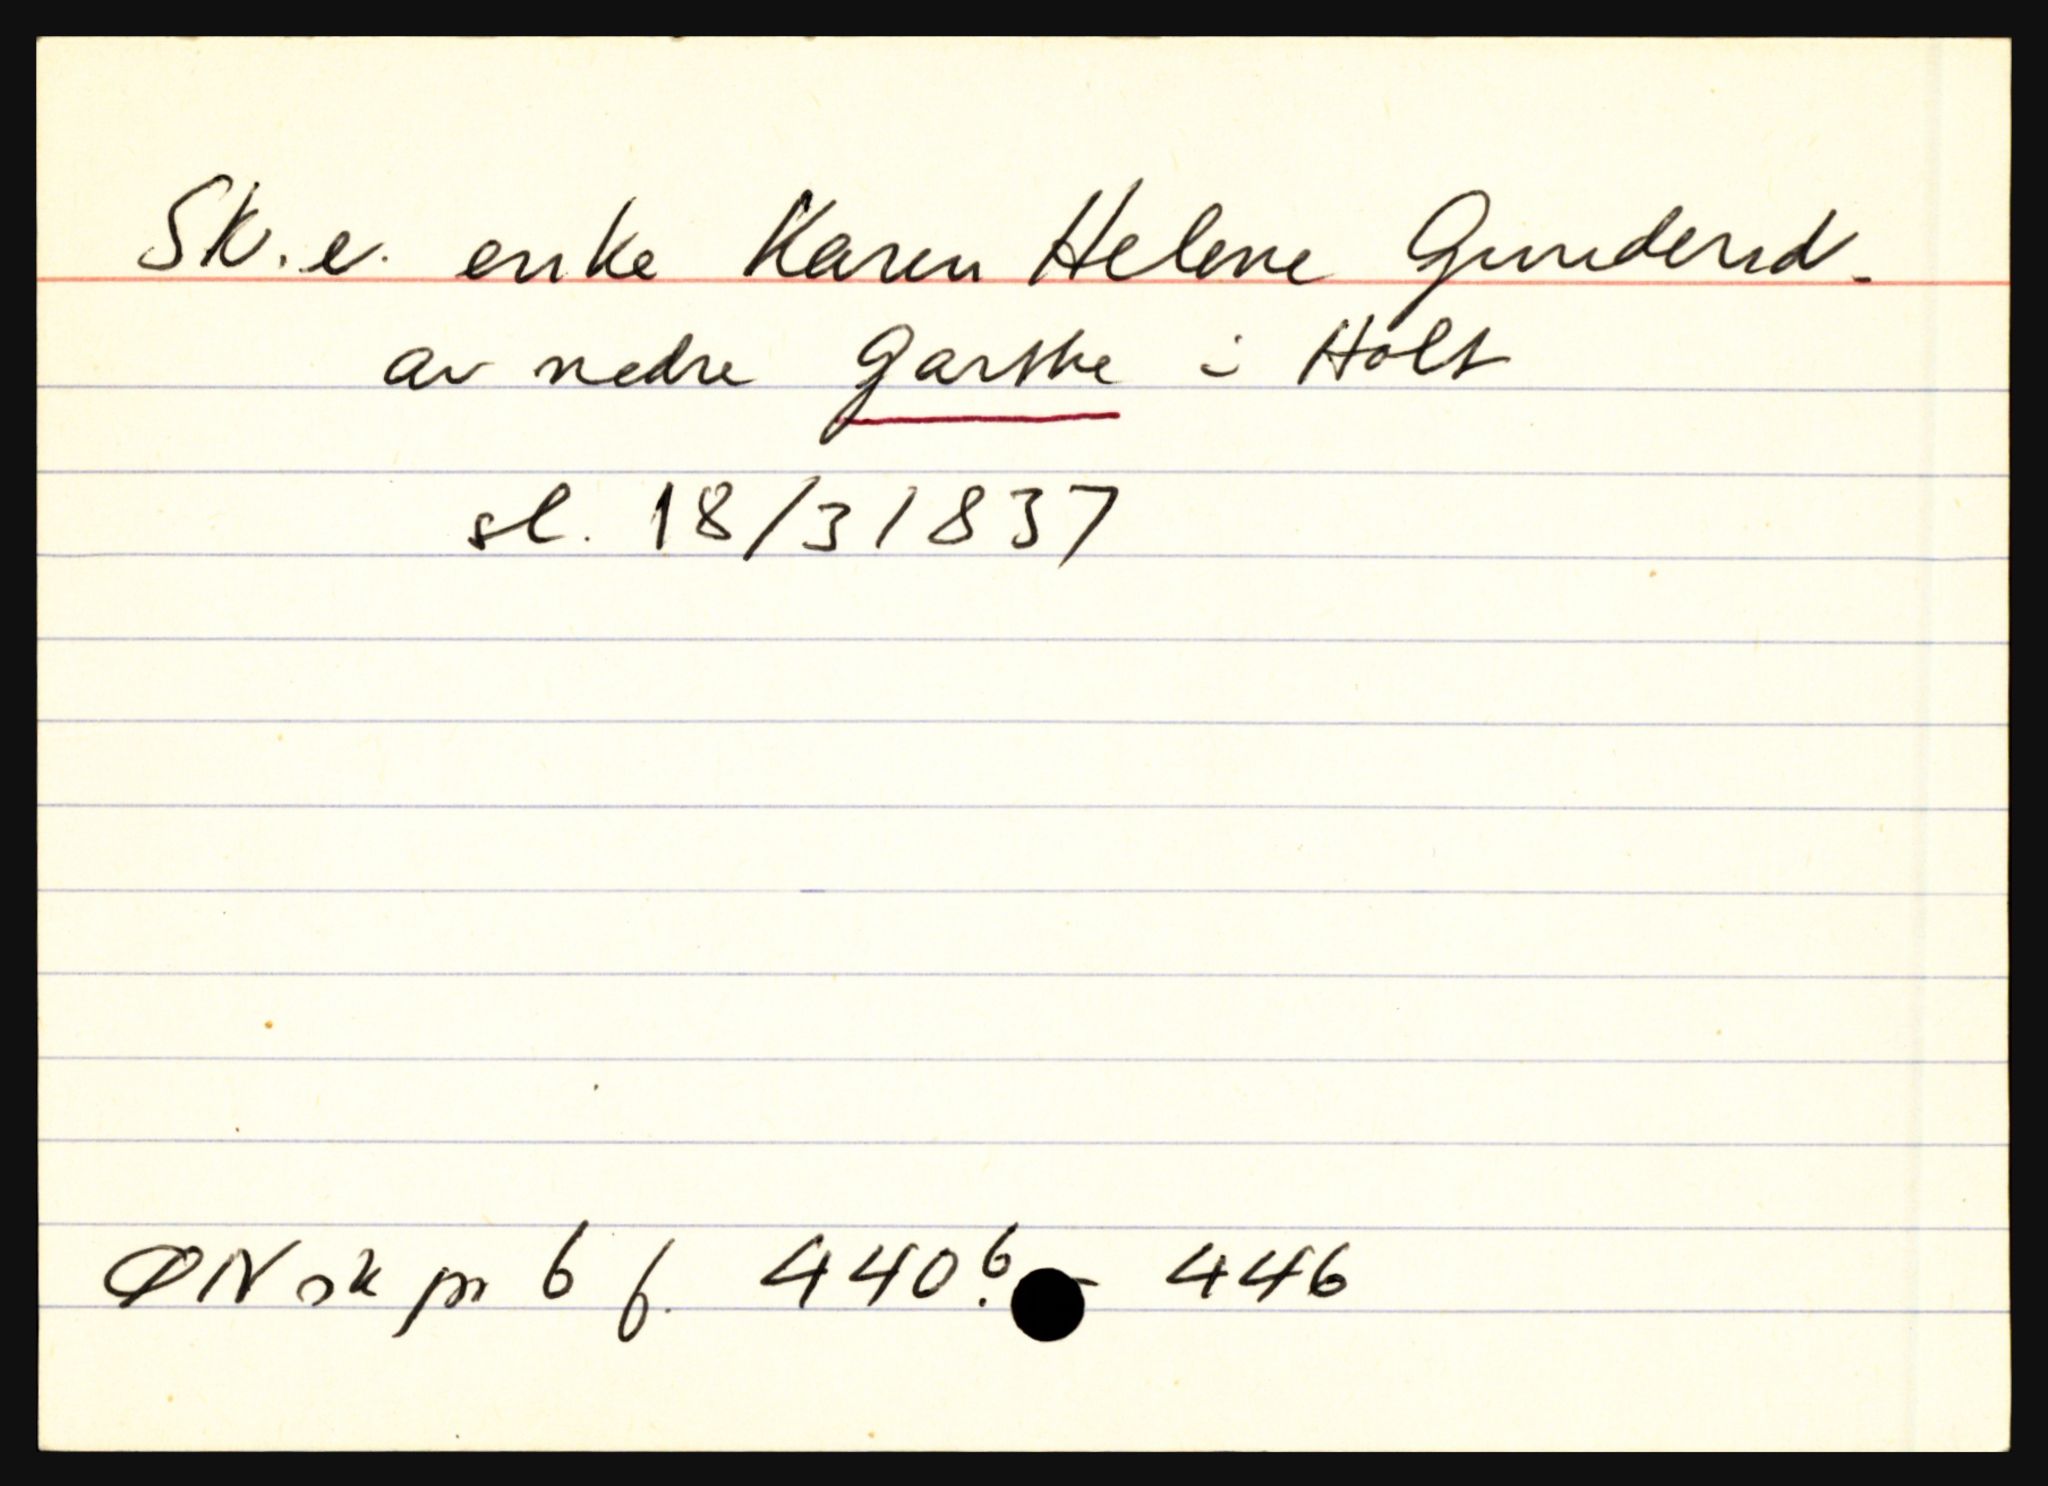 Sk. e. enke Karen Helene Gundersd.
av nedre Garthe i Holt
sl. 18/3 1837
ØN sk pr 6 f. 440.b - 446